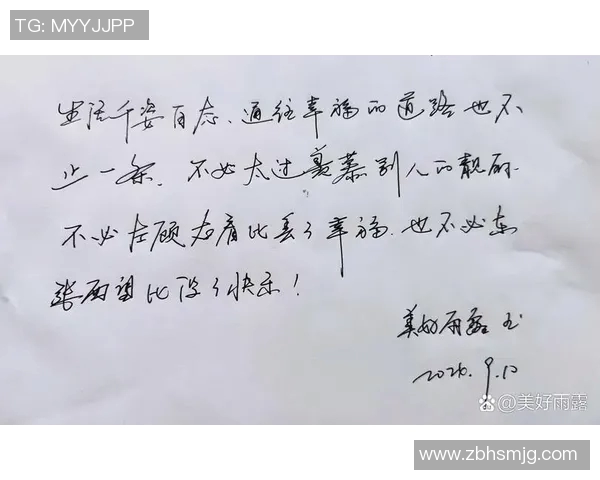 TG: MYYJJPP
生活千姿百态、通往幸福的道路也不
止一条. 不必太过羡慕别人的靓丽.
不必左顾右看比丢了幸福. 也不必东
张西望比没了快乐!
美好雨露
2020.9.10
美好雨露
www.zbhsmjg.com